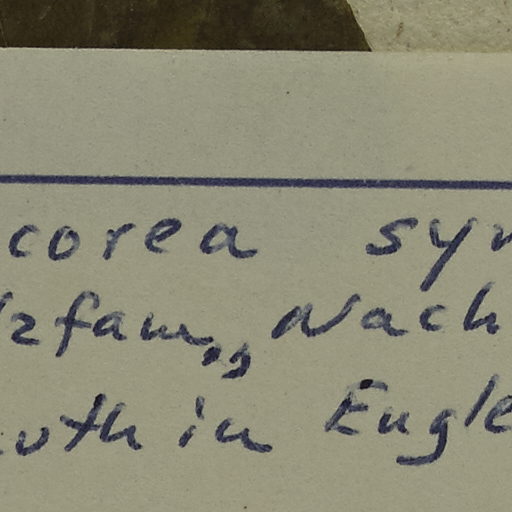 corea syn
lzfam., Nach
uth in Engle